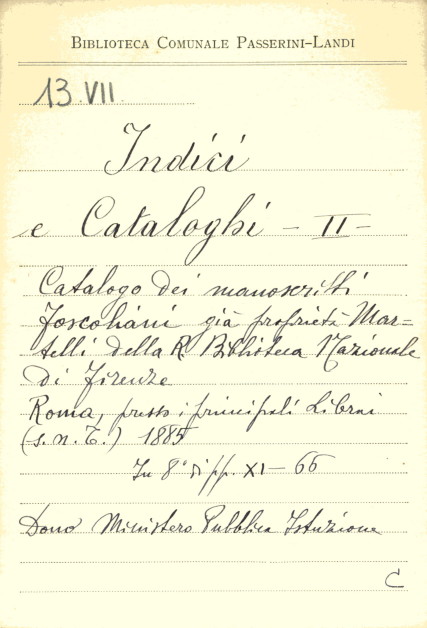 BIBLIOTECA COMUNALE PASSERINI-LANDI
13.VII.
Indici
e Cataloghi - II -
Catalogo dei manoscritti
foscoliani già proprietà Mar=
telli della R. Biblioteca Nazionale
di Firenze
Roma, presso i principali Librai
(s. n. T.) 1885
In 8° di pp. XI - 66
Dono Ministero Pubblica Istruzione
C